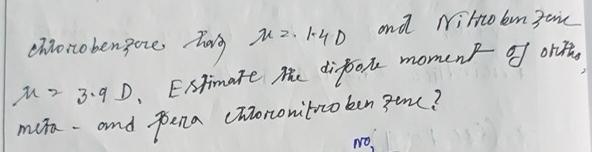 chlorobenzene has μ = 1.4D and Nitrobenzene
μ = 3.9 D. Estimate the dipole moment of ortho,
meta - and para chloronitrobenzene?
NO